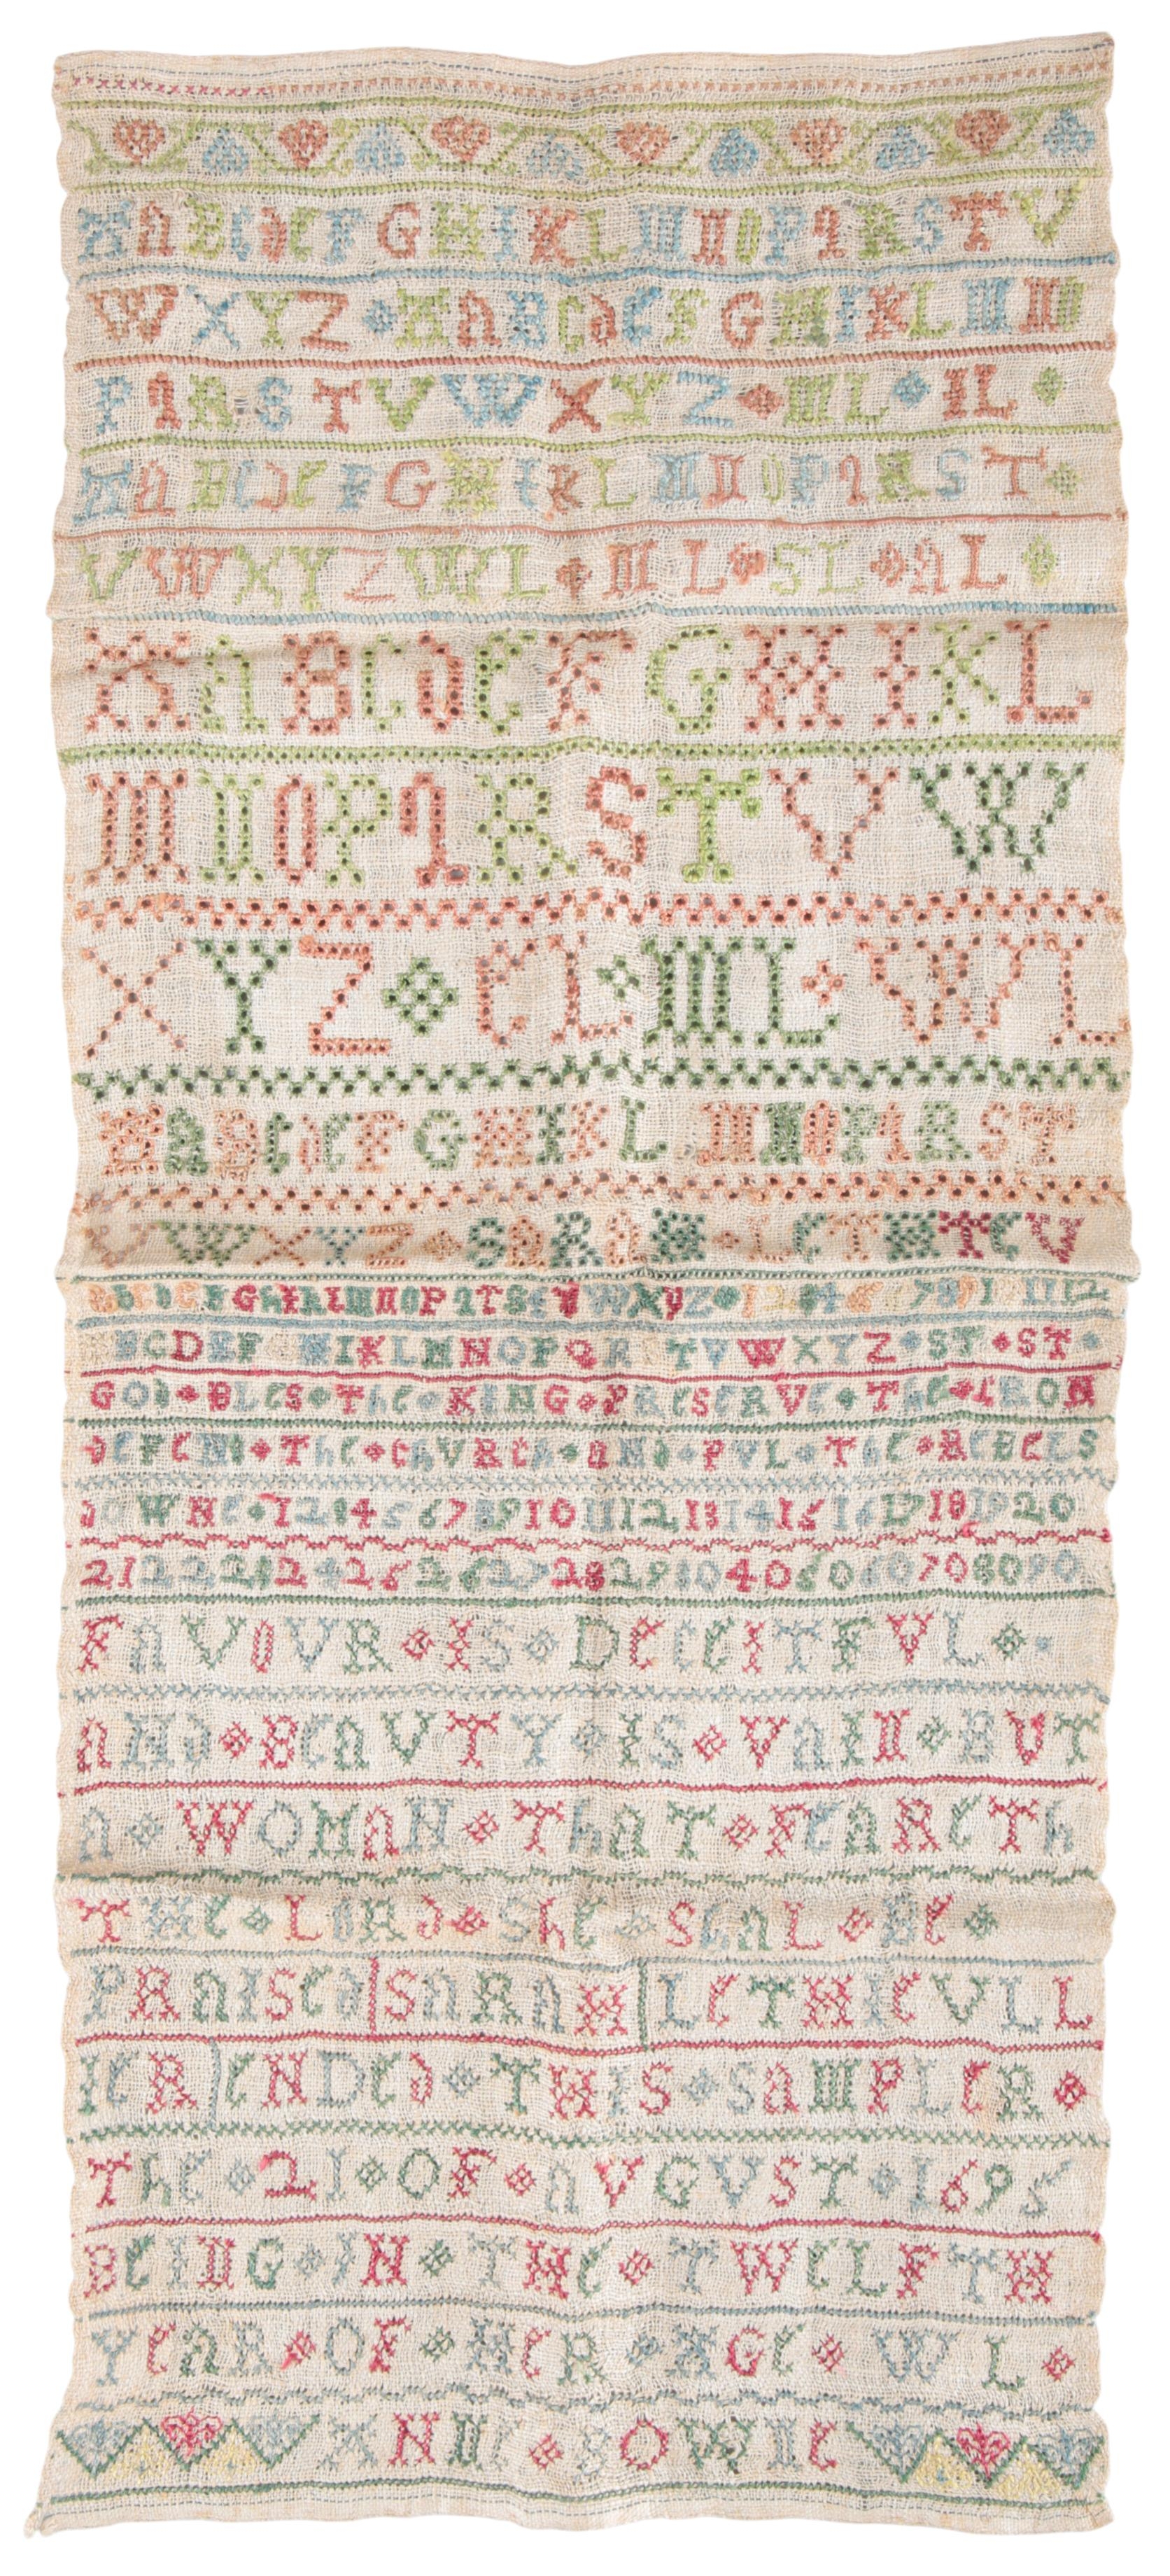 A a B C d e F G H I K L M N O P q R S T V
W X Y Z A a B C d e F G H I K L M N
P q R S T V W X Y Z ML IL
A a B C d e F G H I K L M N O P q R S T
V W X Y Z WL ML SL AL
A a B C d e F G H I K L
M N O P q R S T V W
X Y Z eL ML WL
A a B C d e F G H I K L M N O P q R S T
V W X Y Z SaRaH LeTHeV
B C D E F H I K L M N O P Q R T V W X Y Z ST ST
GOd BLeS The KING PReSeRVe The CRON
deFeNd The ChVRCh aNd PVL The ReBeLS
dOWNe 1 2 3 4 5 6 7 8 9 10 11 12 13 14 15 16 17 18 19 20
21 22 23 24 25 26 27 28 29 30 40 50 60 70 80 90
FaVOVR IS DeCeITFVL
aNd BeaVTY IS VaIN BUT
a WOMaN ThaT FeaReTh
THe LORd She SeaL Be
PRaISed SaRaH LeTHIeVLL
IeR eNDed THIS SaMPLeR
The 21 OF aVGVST 1695
BeING IN THe TWeLFTH
YeaR OF HeR AGe WL
ANN BOWIe